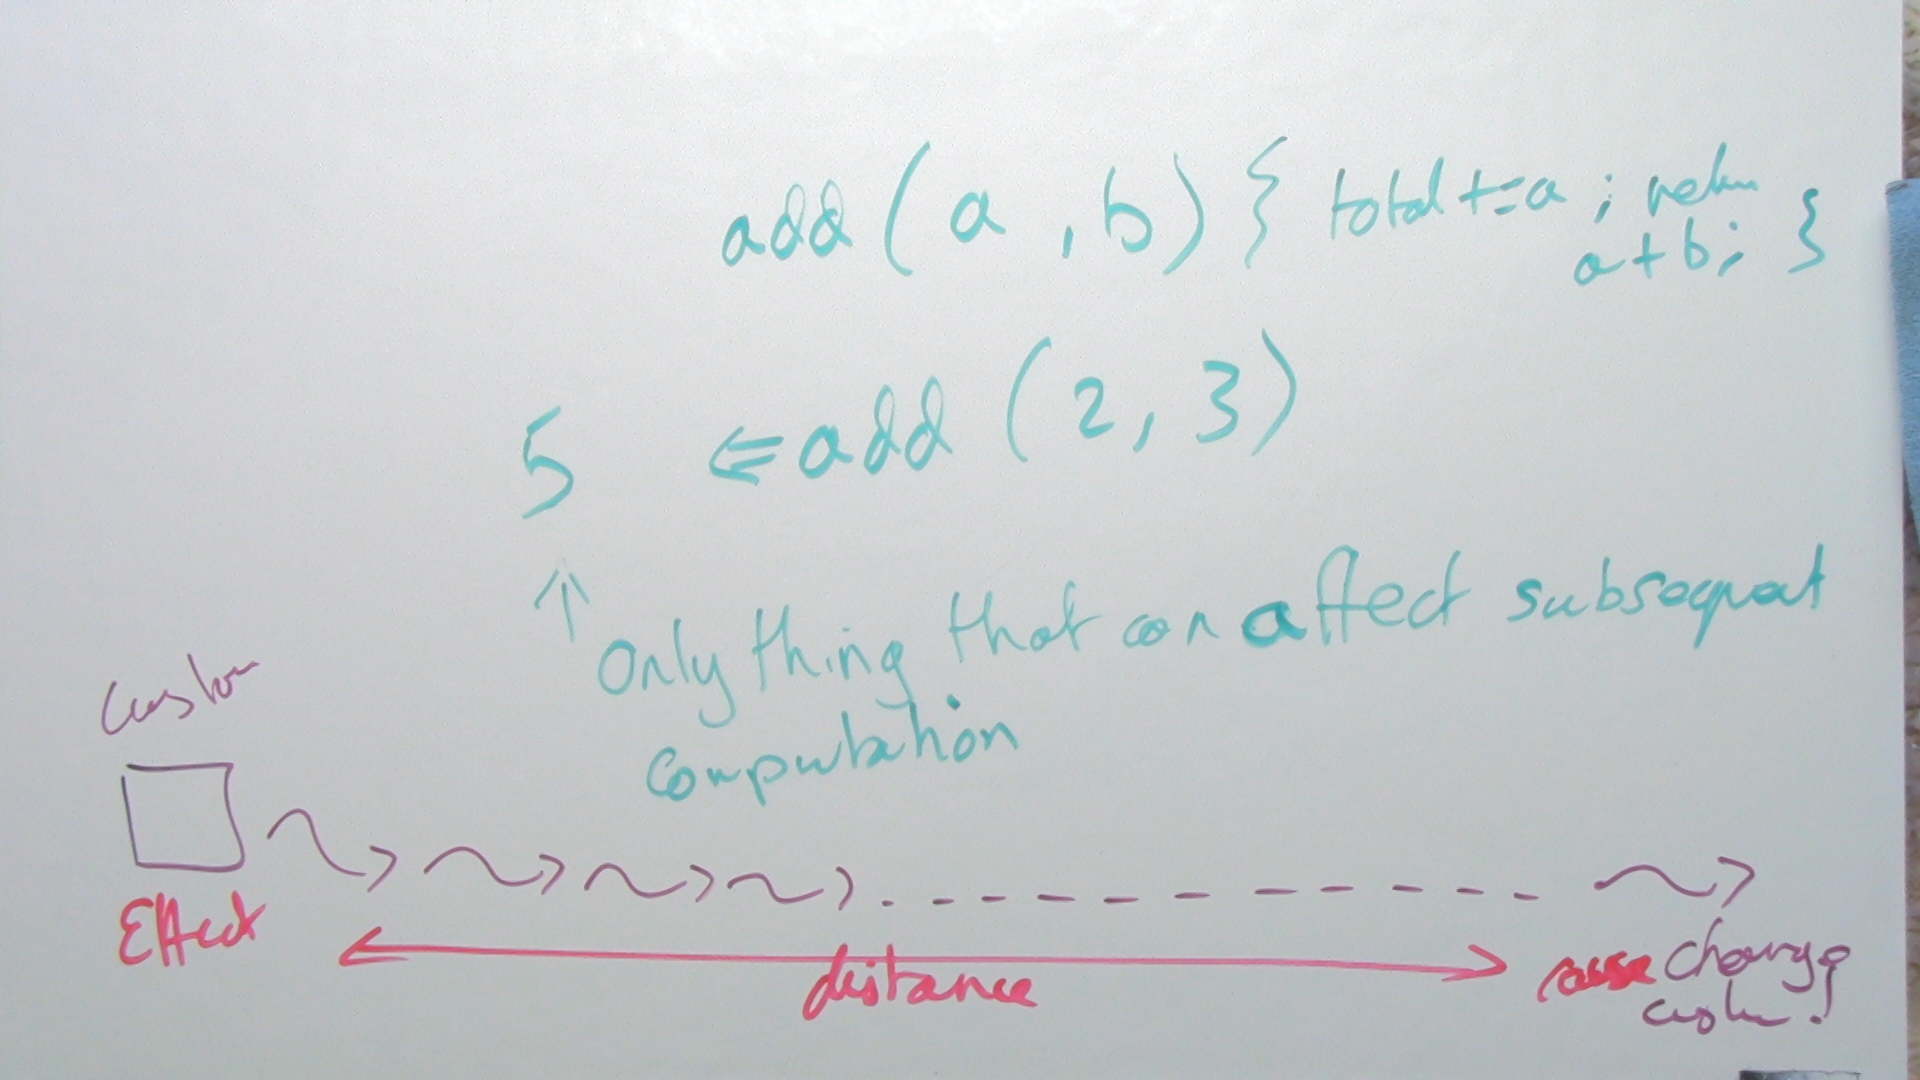 add (a, b) { total += a; return
a + b; }
5 ⇐ add (2, 3)
↑ Only thing that can affect subsequent
computation
Custom
Effect
distance
cause change
custom!